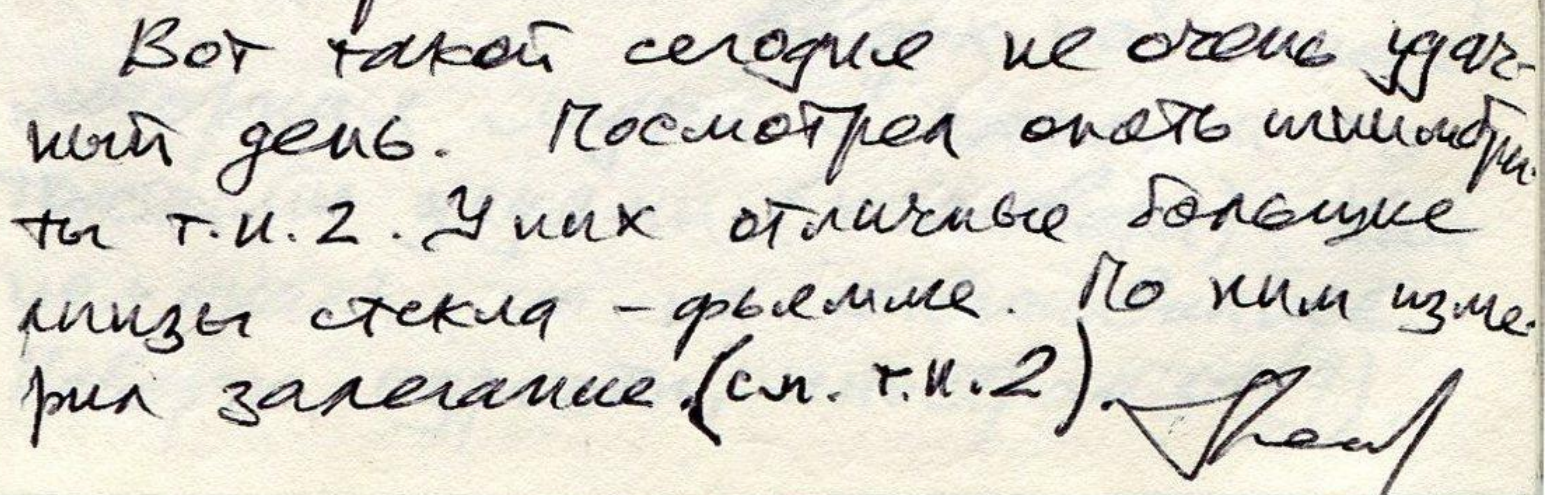 Вот такой сегодня не очень удач-
ный день. Посмотрел опять игнимбри-
ты т.н.2. У них отличные большие
линзы стекла – фьямме. По ним изме-
рил залегание (см. т.н.2).